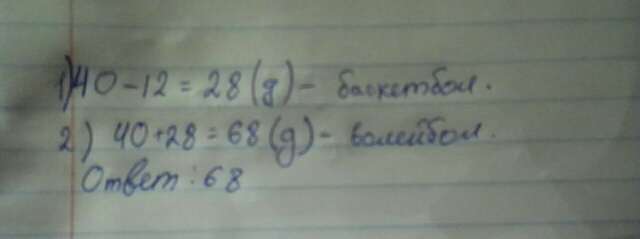 1) 40-12=28(д)- баскетбол.
2) 40+28=68(д)- волейбол.
Ответ: 68